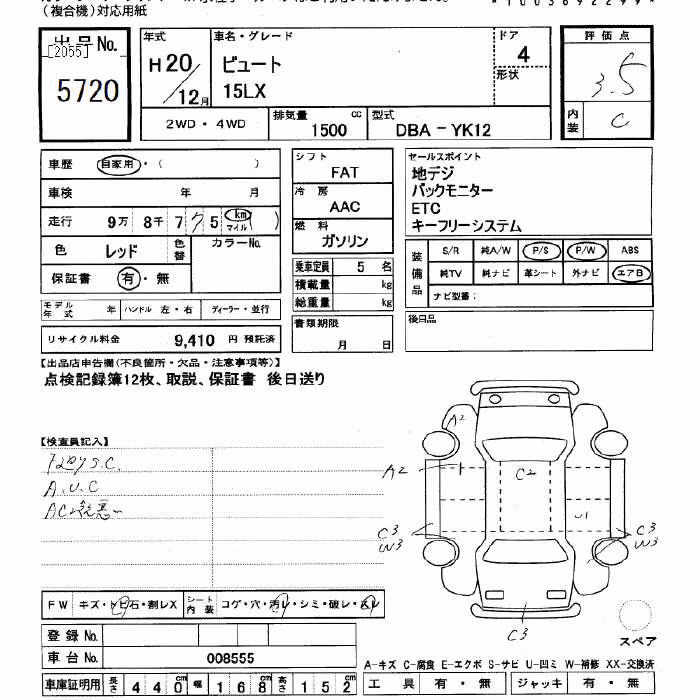 (複合機)対応用紙
*1003692299*
出品No.
[2055]
5720
年式
H20/12月
車名・グレード
ビュート
15LX
ドア
4
形状
評価点
3.5
内装
C
2WD・4WD
排気量 1500 cc
型式 DBA - YK12
車歴 自家用・( )
車検 年 月
走行 9万 8千 7 7 5 (km マイル)
色 レッド 色替 カラーNo.
保証書 有・無
モデル年式 年 ハンドル 左・右 ディーラー・並行
リサイクル料金 9,410 円 預託済
シフト
FAT
冷房
AAC
燃料
ガソリン
乗車定員 5 名
積載量 kg
総重量 kg
書類期限
月 日
セールスポイント
地デジ
バックモニター
ETC
キーフリーシステム
装備品
S/R 純A/W P/S P/W ABS
純TV 純ナビ 革シート 外ナビ エアB
ナビ型番:
後日品
【出品店申告欄(不良箇所・欠品・注意事項等)】
点検記録簿12枚、取説、保証書 後日送り
【検査員記入】
A.U.C
FW キズ・トビ石・割レX シート内装 コゲ・穴・汚レ・シミ・破レ・スレ
登録No.
車台No. 008555
車庫証明用 長さ 440cm 幅 168cm 高さ 152cm
A2
A2
C2
C3
W3
C3
W3
C3
スペア
A-キズ C-腐食 E-エクボ S-サビ U-凹ミ W-補修 XX-交換済
工具 有・無 ジャッキ 有・無